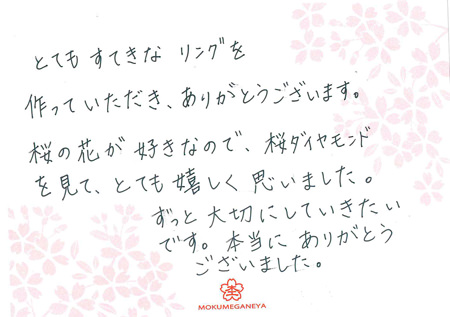 とても すてきな リングを
作っていただき、ありがとうございます。
桜の花が 好きなので、桜ダイヤモンド
を見て、とても 嬉しく 思いました。
ずっと 大切にしていきたい
です。本当に ありがとう
ございました。
MOKUMEGANEYA